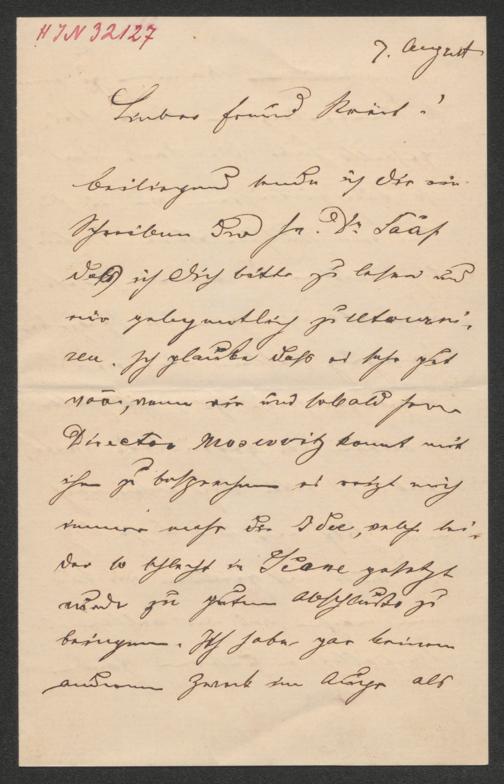 H I N 32127
7. August
Lieber Freund Kraus!
beiliegend sende ich Dir ein
Schreiben des Hr. Dr.
daß ich Dich bitte zu lesen und
mir gelegentlich zu retourni-
ren. Ich glaube daß es sehr gut
wäre, wenn wir uns sobald Herr
Director Moscovitz kommt mit
ihm zu besprechen es reizt mich
immer mehr die Idee, welche lei-
der so schlecht in Scene gesetzt
wurde zu gutem Abschluße zu
bringen. Ich habe gar keinen
anderen Zweck im Auge als